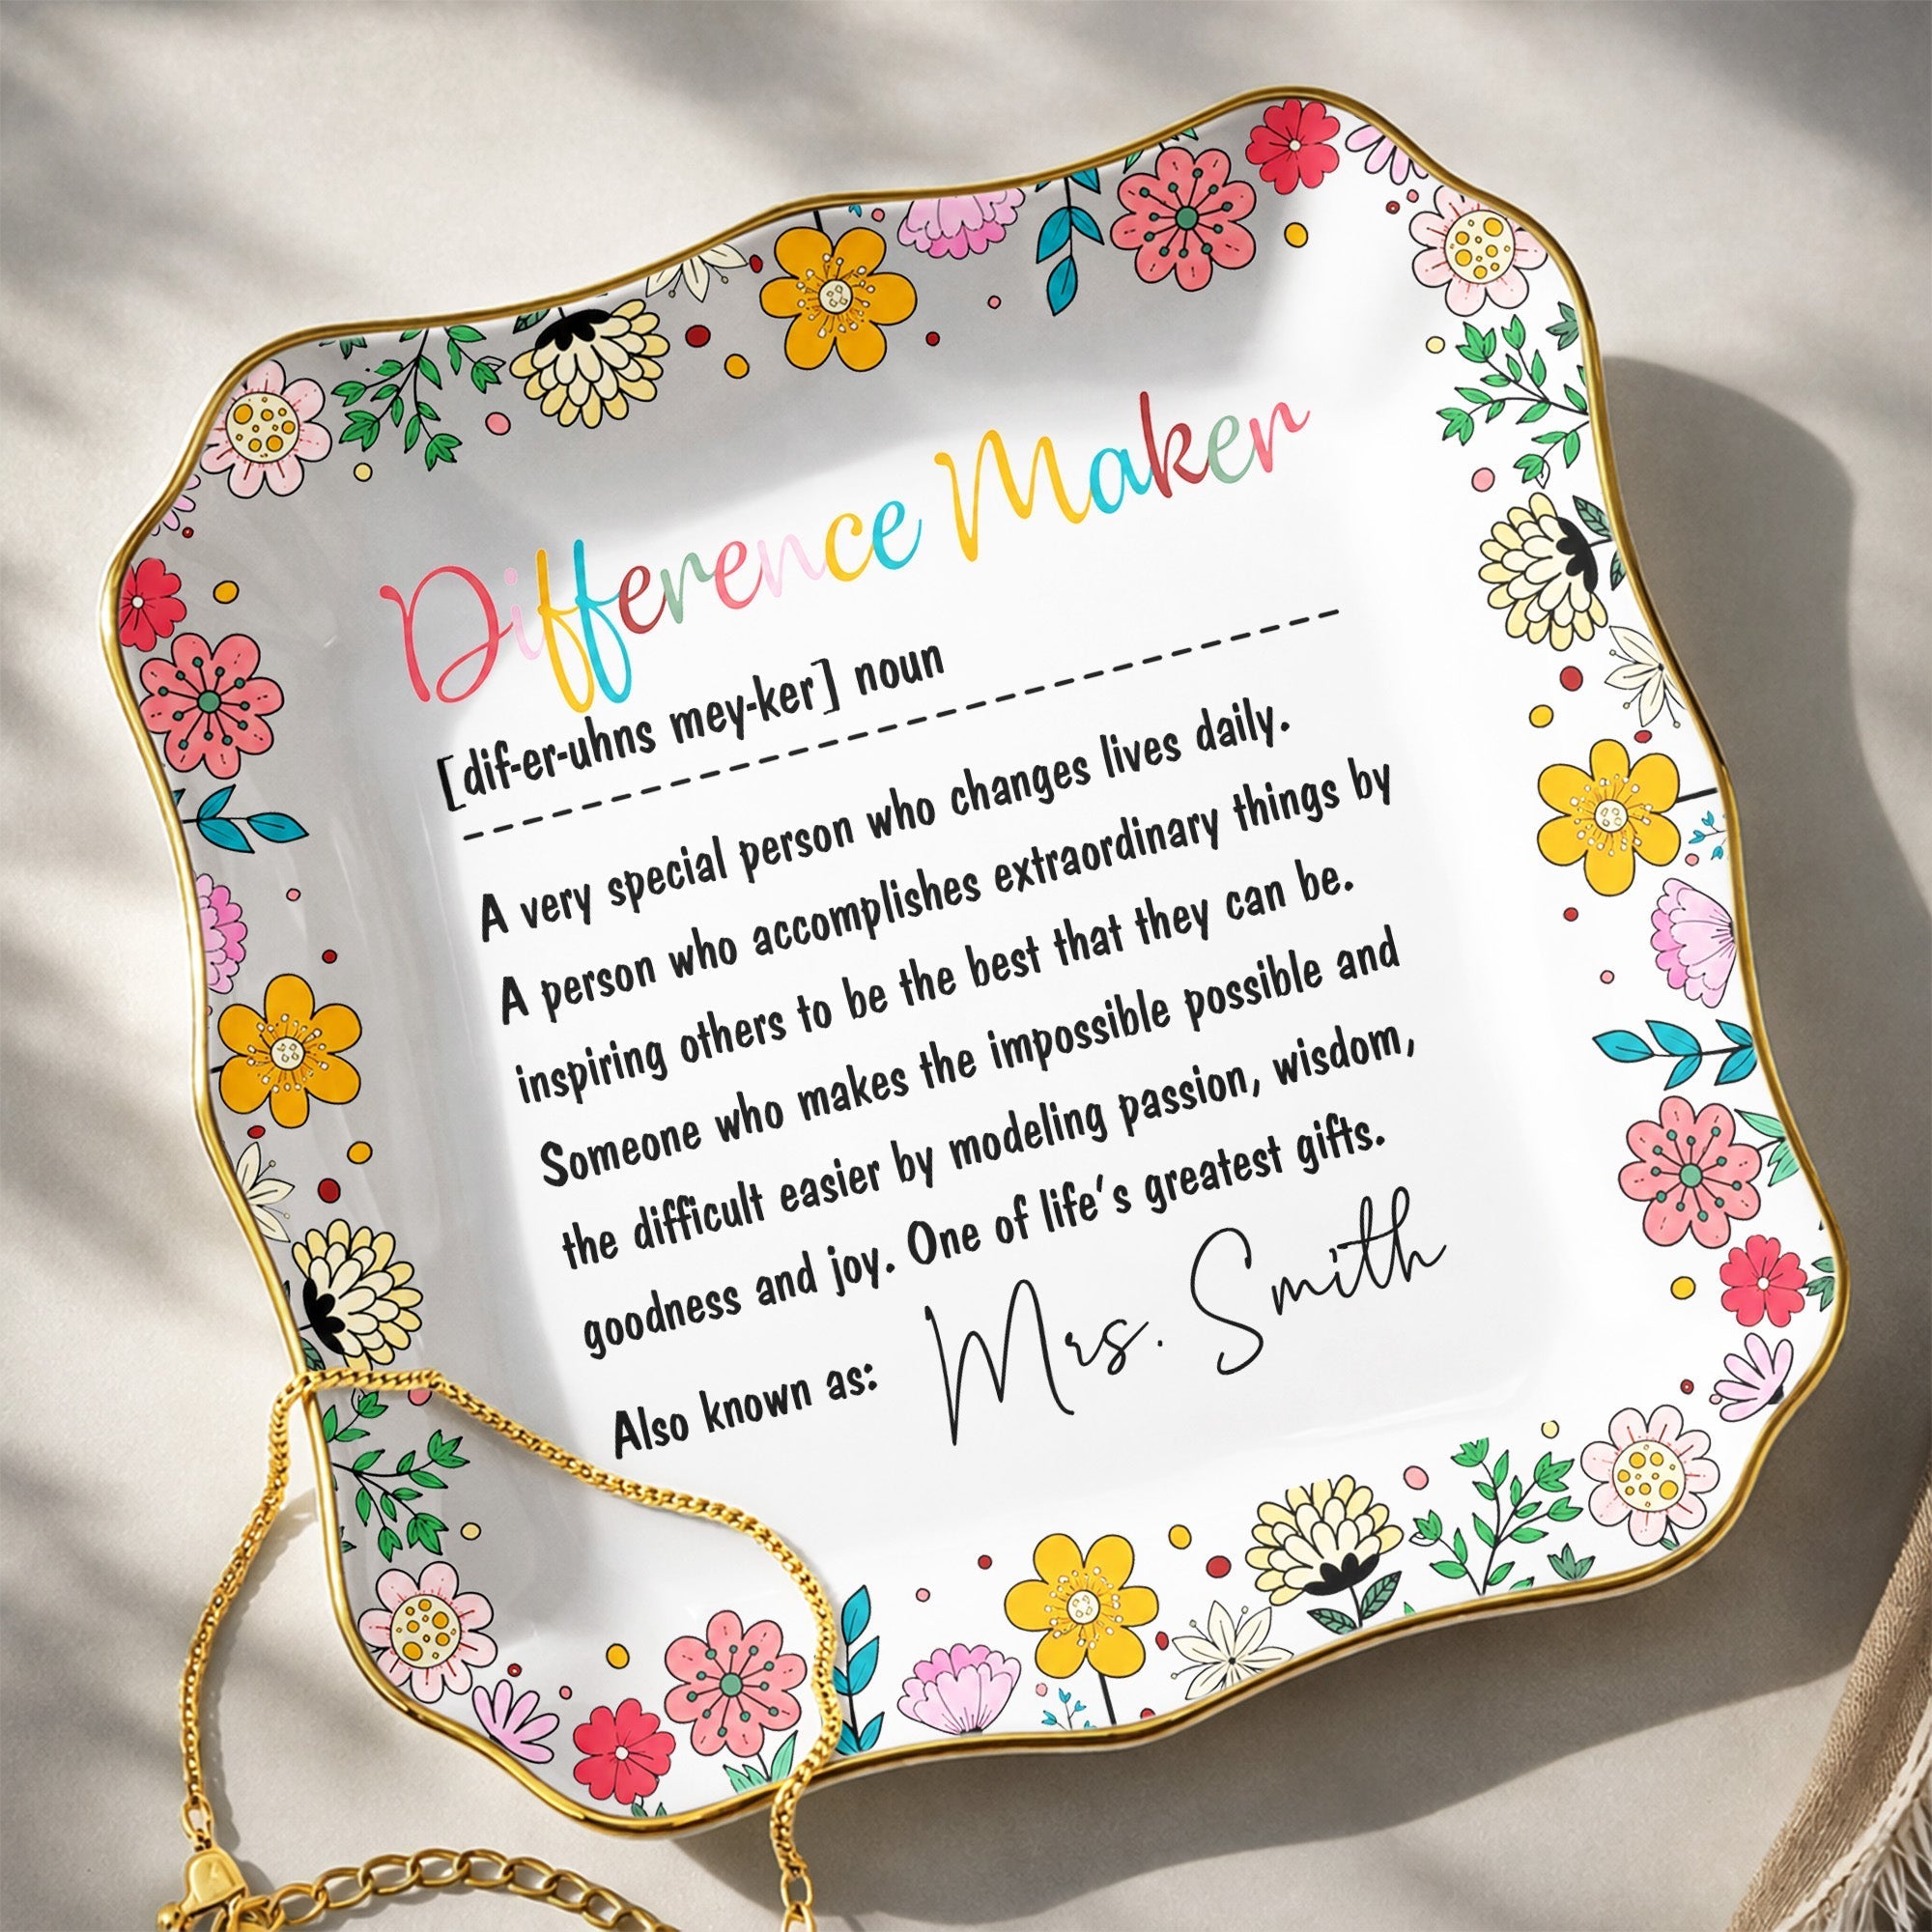 Difference Maker
[dif-er-uhns mey-ker] noun
A very special person who changes lives daily.
A person who accomplishes extraordinary things by
inspiring others to be the best that they can be.
Someone who makes the impossible possible and
the difficult easier by modeling passion, wisdom,
goodness and joy. One of life's greatest gifts.
Also known as: Mrs. Smith